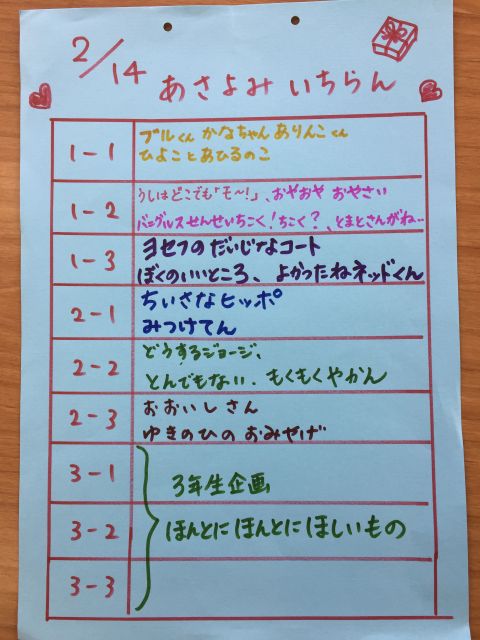 2/14 あさよみ いちらん
1-1
ブルくん かなちゃん ありんこくん
ひよことあひるのこ
1-2
うしはどこでも「モ〜!」、おやおや おやさい
バニグルスせんせいちこく!ちこく?、とまとさんがね‥
1-3
ヨセフのだいじなコート
ぼくのいいところ、よかったねネッドくん
2-1
ちいさなヒッポ
みつけてん
2-2
どうするジョージ、
とんでもない. もくもくやかん
2-3
おおいしさん
ゆきのひの おみやげ
3-1
3年生企画
3-2
ほんとにほんとにほしいもの
3-3